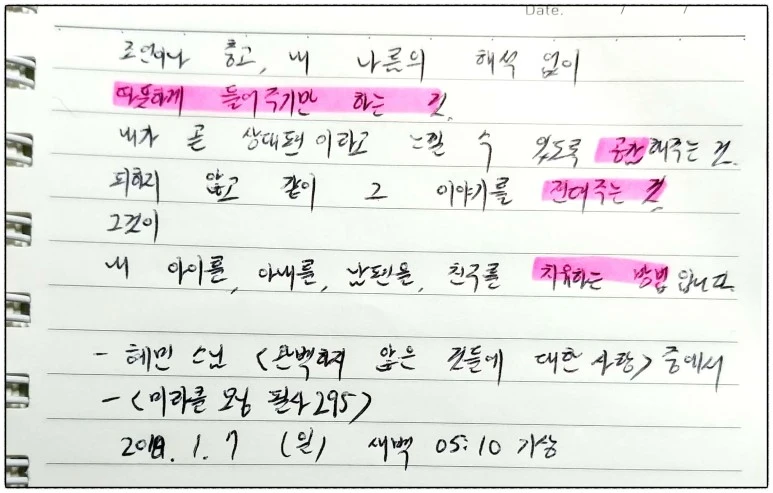 Date. / /
조언하나 충고, 내 나름의 해석 없이
따뜻하게 들어주기만 하는 것.
내가 곧 상대편이라고 느낄 수 있도록 공감해주는 것.
피하지 않고 같이 그 이야기를 견뎌주는 것,
그것이
내 아이를, 아내를, 남편을, 친구를 치유하는 방법입니다.
- 혜민 스님 <완벽하지 않은 것들에 대한 사랑> 중에서
- <미라클 모닝 필사 295>
2018. 1. 7 (일) 새벽 05:10 기상